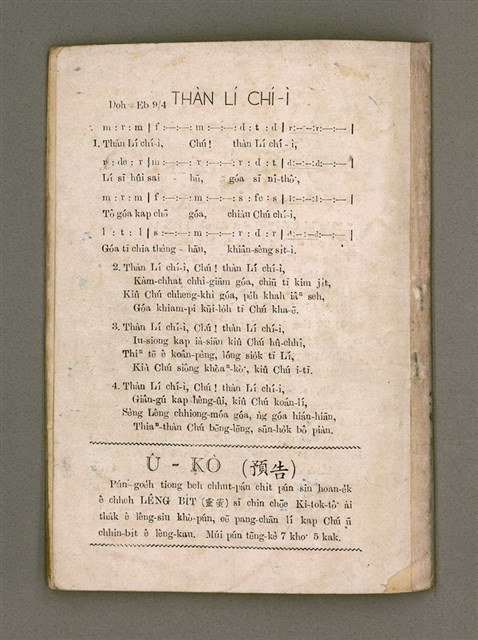 THÀN LÍ CHÍ-Ì
Doh = Eb 9/4
m : r : m | f :—:— : m :—:— : d : t : d | r:—:—:r:—:— |
1. Thàn Lí chí-ì, Chú! thàn Lí chí-ì,
r : de : r | m :—:— : r :—:— : r : d : t | d:—:—:d:—:— |
Lí sī hûi sai-hū, góa sī nî-thô͘,
m : r : m | f :—:— : m :—:— : s : fe : s | l:—:—:l:—:— |
Tò góa kap chō góa, chiàu Chú chí-ì,
l : t : l | s :—:— : m :—:— : r : d : r | d:—:—:d:—:— |
Góa tī chia thèng-hāu, khiân-sêng sit-i.
2. Thàn Lí chí-ì, Chú! thàn Lí chí-ì,
Kàm-chhat chhì-giām góa, chiū tī kim jit,
Kiû Chú chheng-khì góa, pe̍h khah iâⁿ seh,
Góa khiam-pi kūi-lo̍h tī Chú kha-ē.
3. Thàn Lí chí-ì, Chú! thàn Lí chí-ì,
Iu-siong kap ià-siān kiû Chú hû-chhî,
Thiⁿ tē ê koân-pèng, lóng sio̍k tī Lí,
Kiû Chú siông khòaⁿ-kò͘, kiû Chú i-tī.
4. Thàn Lí chí-ì, Chú! thàn Lí chí-ì,
Giân-gú kap hêng-ûi, kiû Chú koán-lí,
Sèng Lêng chhiong-móa góa, ǹg góa hián-hiān,
Thiaⁿ-thàn Chú bēng-lēng, sūn-ho̍k bô piàn.
Û - KÒ (預告)
Pún goe̍h tiong beh chhut-pán chi̍t pún sin hoan-e̍k
ê chheh LÊNG BI̍T (靈蜜) sī chin chōe Ki-tok-tô͘ ài
tha̍k ê lêng-siu khò-pún, oē pang-chān lí kap Chú ū
chhin-bi̍t ê lêng-kau. Múi pún tēng-kè 7 kho͘ 5 kak.